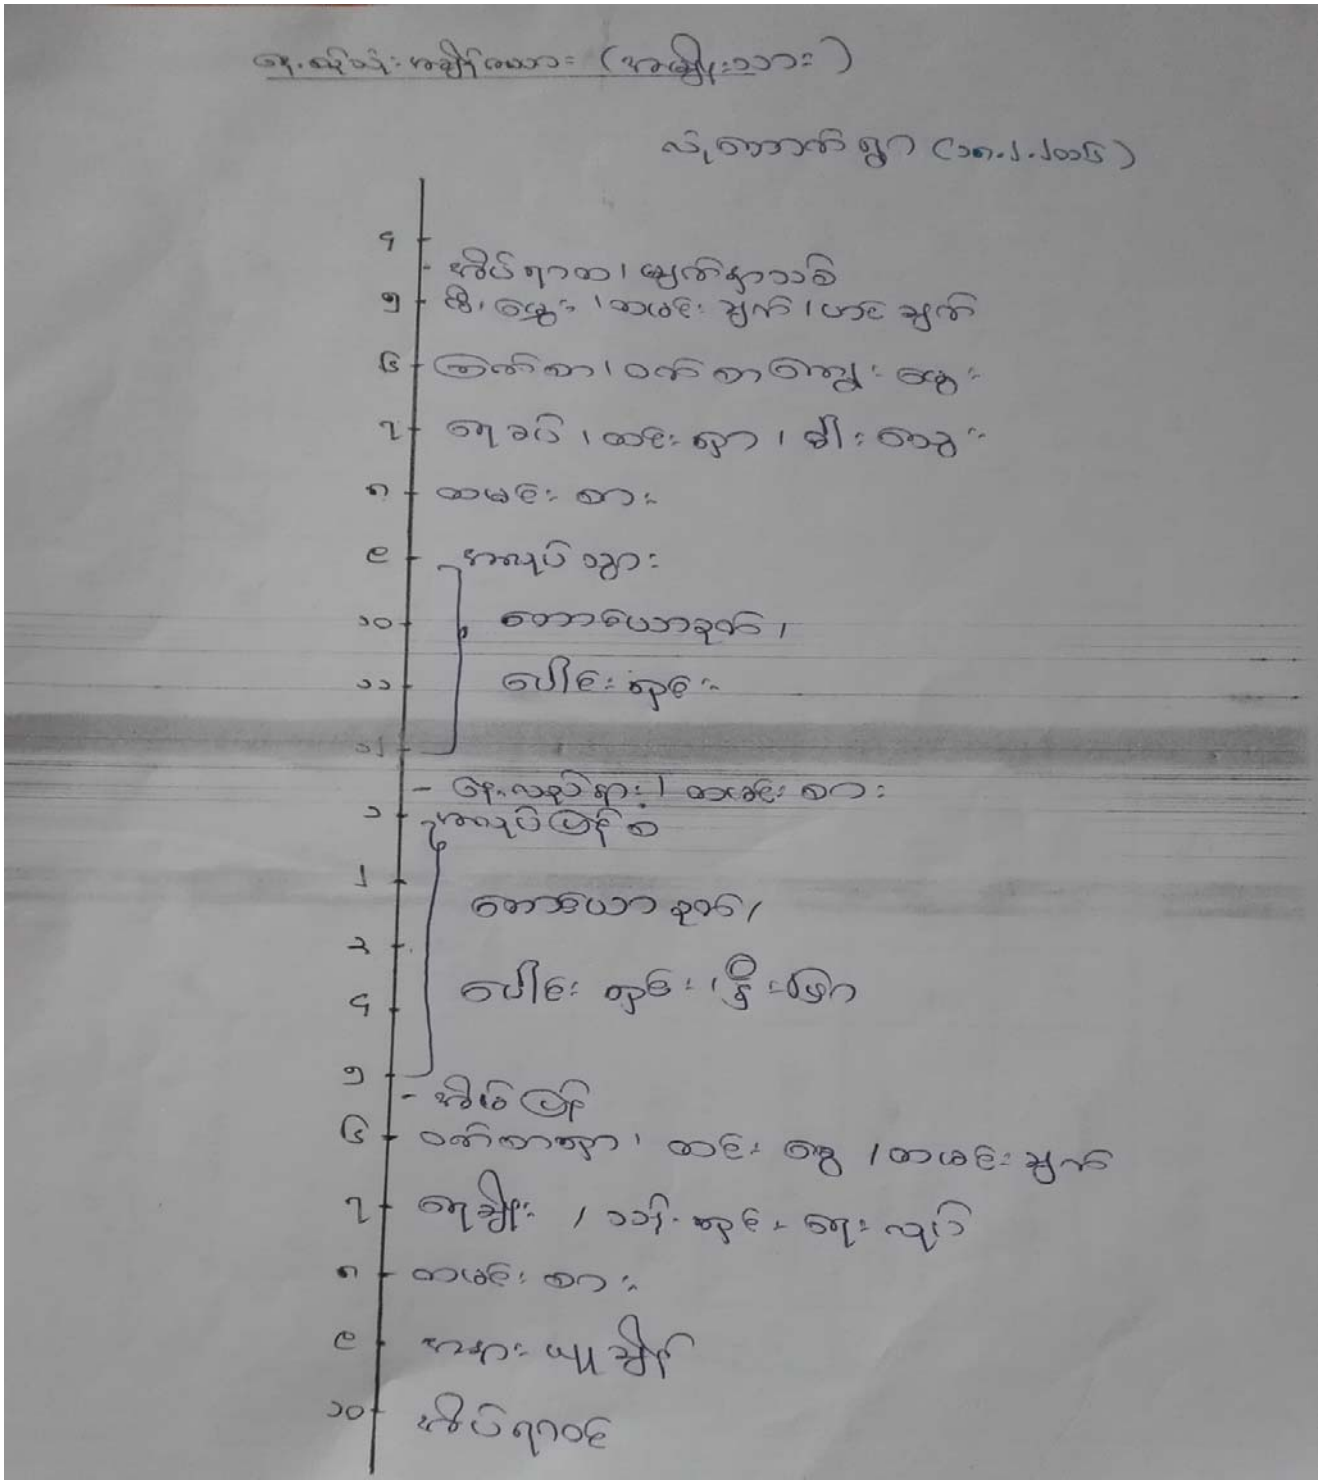 နေ့စဉ်သုံးအချိန်ဇယား (အမျိုးသား)
ရွာ (၁၈.၂.၂၀၁၆)
၄
အိပ်ရာထ၊ မျက်နှာသစ်
၅ မီးမွှေး၊ ထမင်းချက်၊ ဟင်းချက်
၆ ကြက်စာ၊ ဝက်စာကျွေး
၇ ရေခပ်၊ ထင်းရှာ၊
၈ ထမင်းစား
၉ အလုပ်သွား
၁၀ တောင်ယာခုတ်၊
၁၁ ပေါင်းရှင်း
၁၂
- နေ့လည်နား၊ ထမင်းစား
၁ အလုပ်ပြန်စ
၂
တောင်ယာခုတ်၊
၃
၄ ပေါင်းရှင်း၊
၅
- အိမ်ပြန်
၆ ဝက်စာရှာ၊ ထင်းခွေ၊ ထမင်းချက်
၇ ရေချိုး၊ သန့်ရှင်းရေးလုပ်
၈ ထမင်းစား
၉ အနားယူချိန်
၁၀ အိပ်ရာဝင်